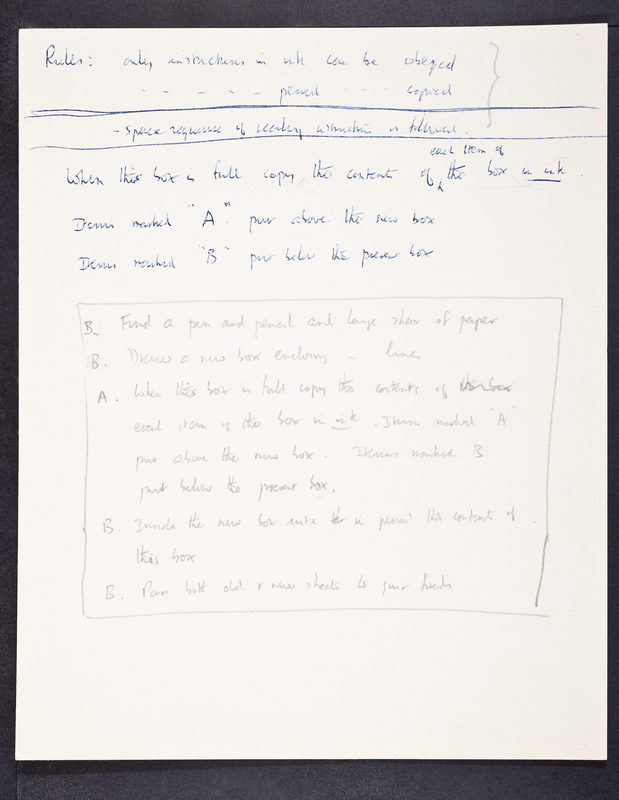 Rules: only instructions in ink can be obeyed
" " " " pencil " " " copied
- space sequence of working instruction is followed.
each item of
When this box is full copy the contents of the box in ink
Items marked "A" put above the new box
Items marked "B" put below the present box
B. Find a pen and pencil and large sheet of paper
B. Draw a new box enclosing - lines
A. When this box is full copy the contents of this box
each item of the box in ink. Items marked "A"
put above the new box. Items marked B
put below the present box.
B. Inside the new box write in pencil the contents of
this box
B. Pass both old & new sheets to your friends